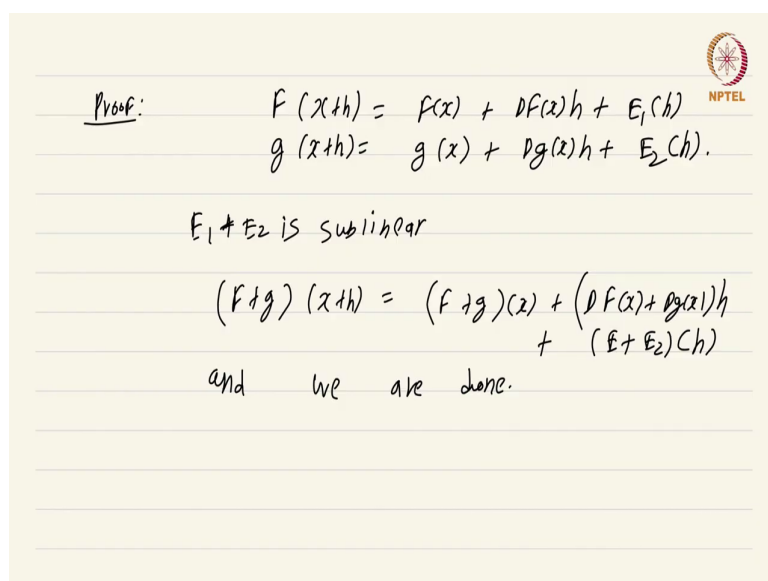 NPTEL
Proof: F(x+h) = F(x) + DF(x)h + E₁(h)
g(x+h) = g(x) + Dg(x)h + E₂(h).
E₁ + E₂ is sublinear
(F+g)(x+h) = (F+g)(x) + (DF(x) + Dg(x))h
+ (E + E₂)(h)
and we are done.